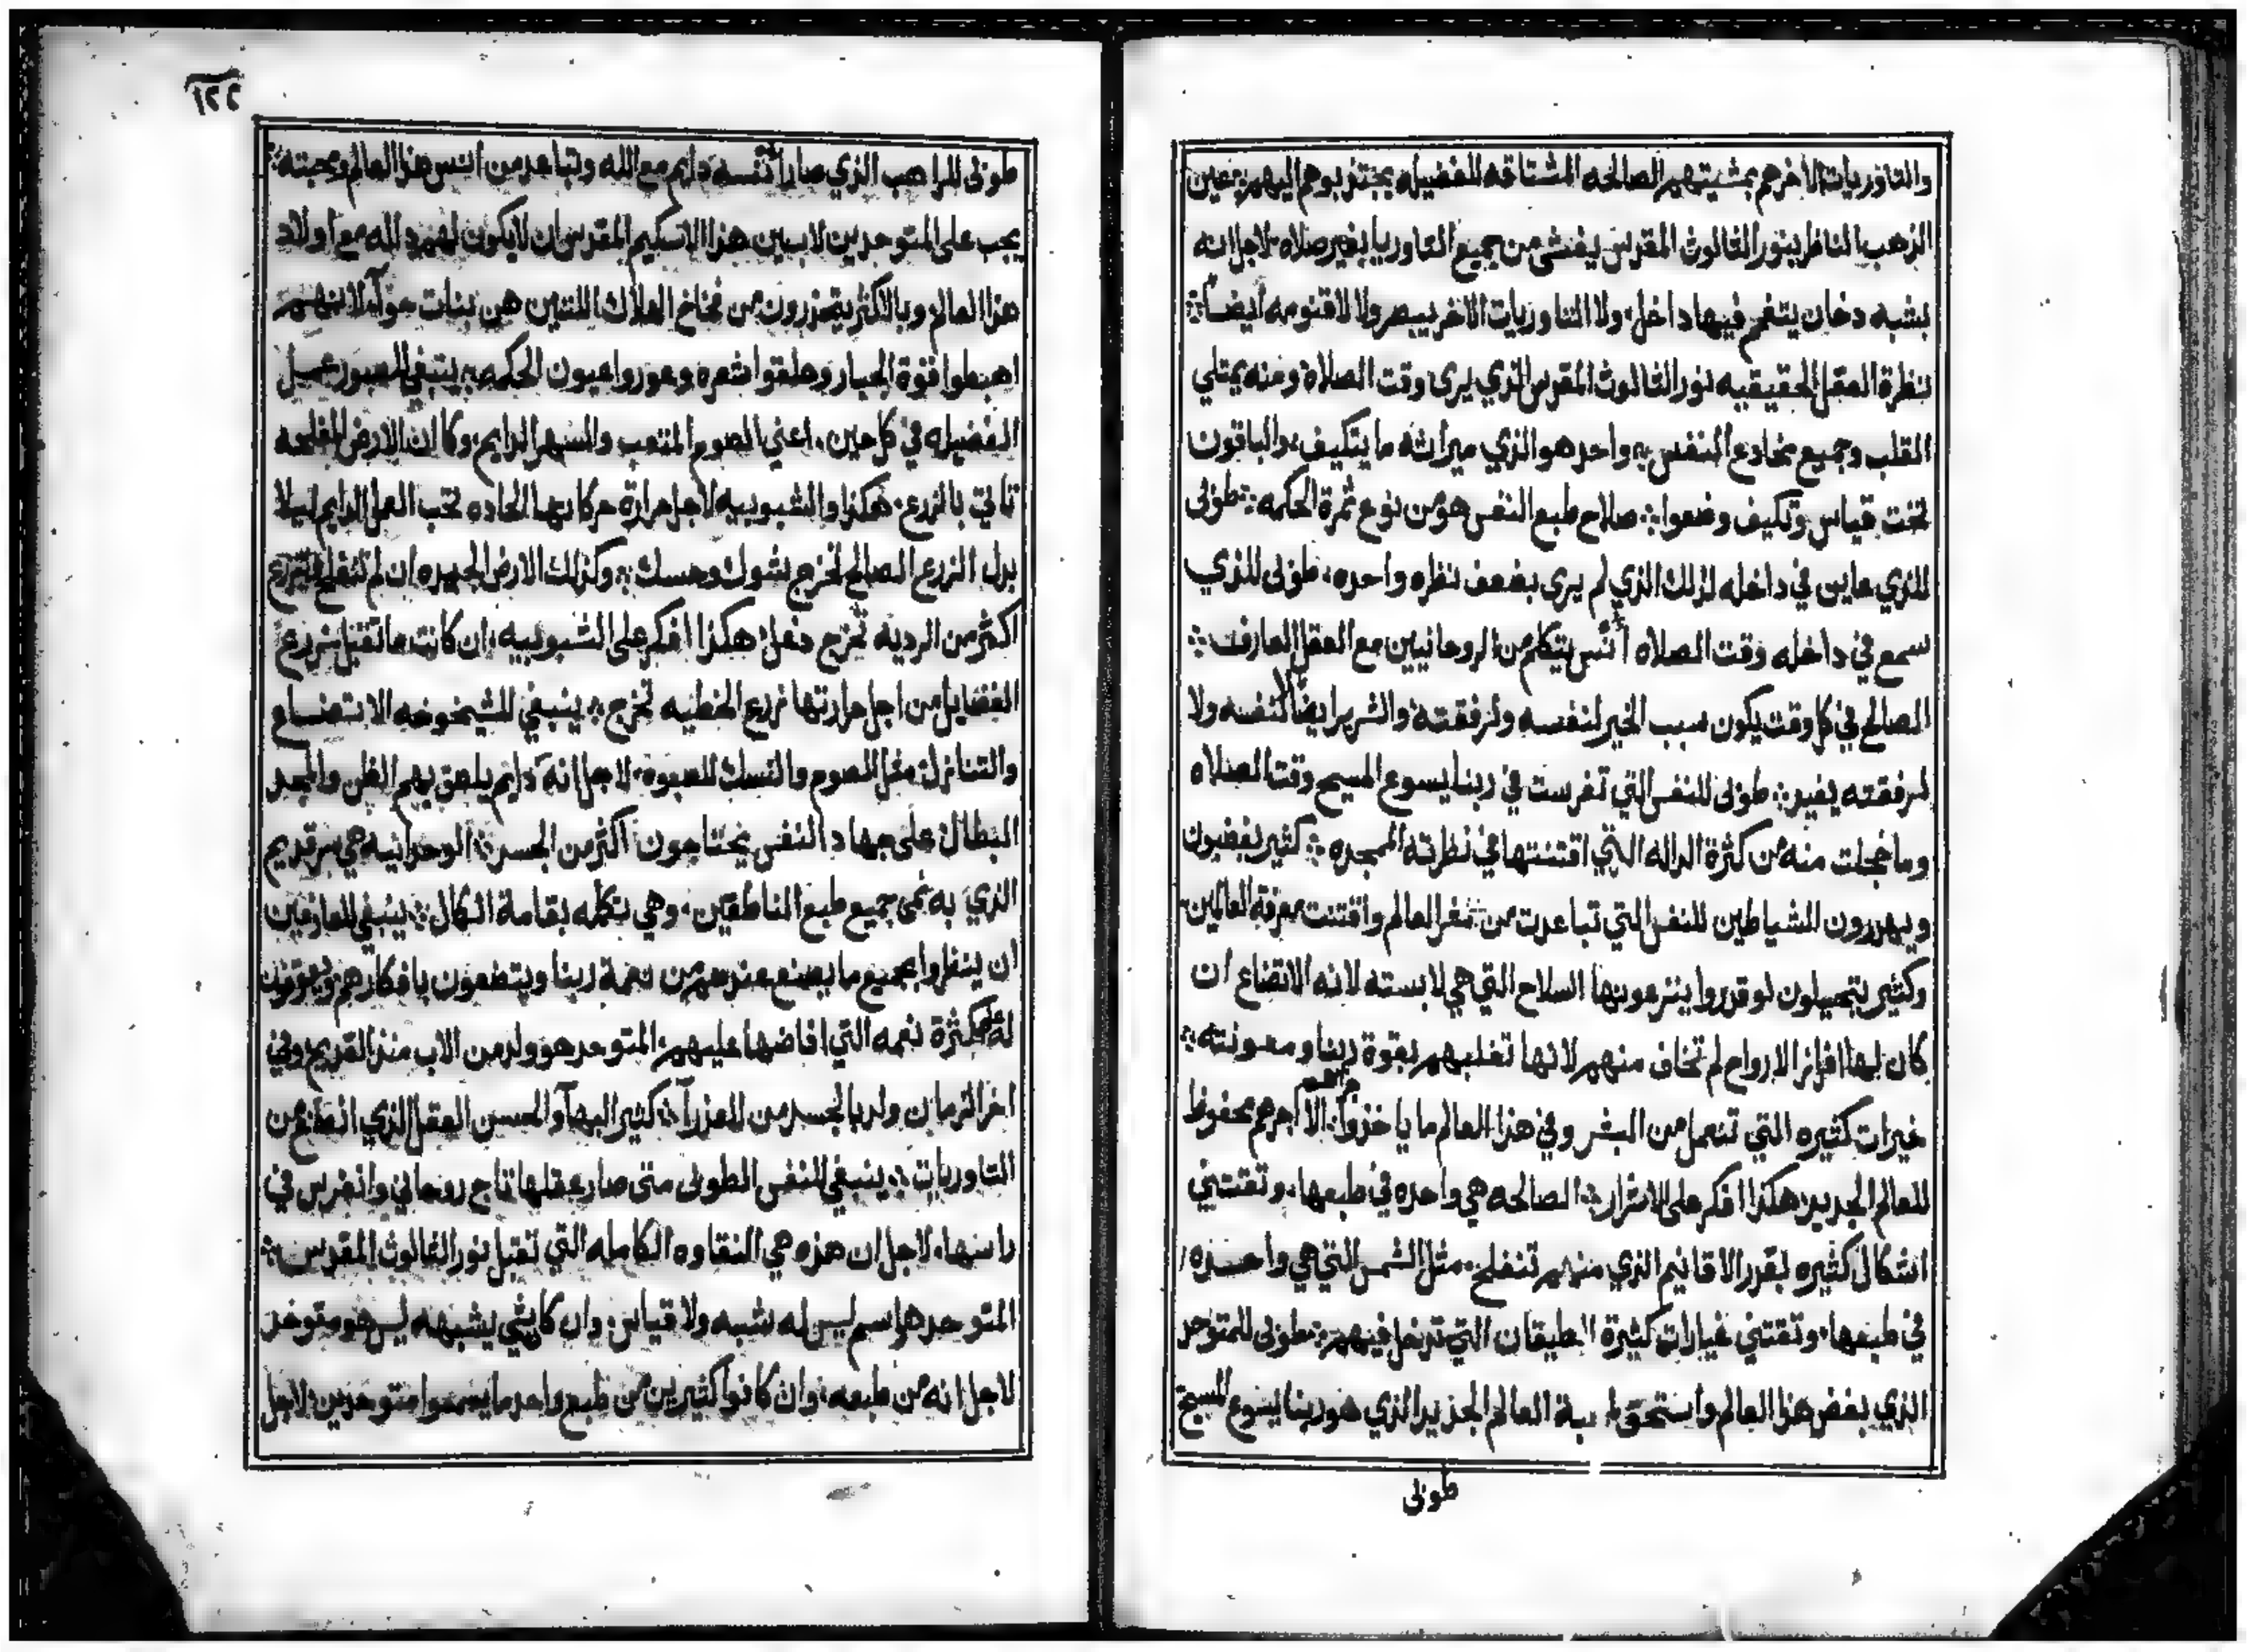 والتاوريات الاخر هم بمشيتهم الصالحه المشتاقه للفضيله يجتذبوهم اليهم ܀ عين
الذهب الناظر بنور الثالوث المقدس يغشى من جميع التاوريا بغير صلاه لاجل انه
بشبه دخان يتغم فيها داخل، ولا التاوريات الاخر يبصر ولا لاقنومه ايضاً ܀
نظرة العقل الحقيقيه نور الثالوث المقدس الذي يرى وقت الصلاة ومنه يمتلي
القلب وجميع مخادع النفس ܀ واحد هو الذي ميراثه ما يتكيف، والباقون
تحت قياس وتكيف وضعوا ܀ صلاح طبع النفس هو من نوع ثمرة الحكمه ܀ طوبى
للذي عاين في داخله لذلك الذي لم يرى بضعف نظره واحده، طوبى للذي
سمع في داخله وقت الصلاه أنس يتكلم من الروحانيين مع العقل العارف ܀
الصالح في كل وقت يكون سبب الخير لنفسه ولرفقته، والشرير ايضاً لا لنفسه ولا
لرفقته يفيد ܀ طوبى للنفس التي تفرست في ربنا يسوع المسيح وقت الصلاه
وما خجلت منه من كثرة الداله التي اقتنتها في نظرته الممجده ܀ كثير يغضبون
ويهددون الشياطين للنفس التي تباعدت من العالم واقتنت معرفة العالمين
وكثير يتحيلون لو قدروا ينزعونها السلاح التي هي لابسته لانه الاتضاع ان
كان لها افراز الارواح لم تخاف منهم لانها تغلبهم بقوة ربنا ومعونته ܀
خيرات كثيره التي تنعمل من البشر وفي هذا العالم ما ياخذوا اجرهم الا اجرهم محفوظ
للعالم الجديد هكذا افكر على الاشرار ܀ الصالحه هي واحده في طبعها، وتقتني
اشكال كثيره بقدر الاقانيم الذي منهم تنفلح، مثل الشمس التي هي واحده
في طبعها، وتقتني خيالات كثيرة الطيقان التي تدخل فيهم ܀ طوبى للمتوحد
الذي بغض هذا العالم واستحق العالم الجديد الذي هو ربنا يسوع المسيح
طوبى
١٢٢
طوبى للراهب الذي صار أنسه دايم مع الله وتباعد من انس هذا العالم ومحبته ܀
يجب على المتوحدين لابسين هذا الاسكيم المقدس ان لا يكون لهم داله مع اولاد
هذا العالم، وبالاكثر يتحذرون من فخاخ الهلاك اللتين هن بنات حوآ، لانهم
اهبطوا قوة الجبار وحلقوا شعره وعوروا عيون الحكمه ܀ ينبغي للصبور عمل
الفضيله في كل حين، اعني الصوم المتعب والسهر الدايم، وكما ان الارض المفلحه
تاتي بالزرع، هكذا والشبوبيه لاجل حرارة حركاتها الحاده تحب العمل الدايم ليلا
بدل الزرع الصالح تخرج شوك وحسك ܀ وكذلك الارض الجيده ان لم تنفلح وتنزرع
اكثر من الرديه تخرج دغل، هكذا افكر على الشبوبيه، ان كانت ما تقبل زرع
الفضايل من اجل حرارتها زرع الخطيه تخرج ܀ ينبغي للشيخوخه الاتضاع
والتنازل مثل الصوم والنسك للصبوه، لاجل انه دايم يلصق بهم الظن والمجد
البطال على جهاد النفس يحتاجون اكثر من الجسد ܀ الوحدانيه هي سر قديم
الذي به نمى جميع طبع الناطقين، وهي تكمله بقامة الكمال ܀ ينبغي للعارفين
ان ينظروا جميع ما يصنع عندهم من نعمة ربنا ويتضعون بافكارهم ويعترفون
له على كثرة نعمه التي افاضها عليهم، المتوحد هو ولد من الاب منذ القديم وفي
اخر الزمان ولد بالجسد من العذرآ ܀ كثير البهآ والحسن العقل الذي انصنع من
التاوريات ܀ ينبغي للنفس الطوبى متى صار عقلها تاج روحاني وانغرس في
راسها، لاجل ان هذه هي النقاوه الكامله التي تقبل نور الثالوث المقدس ܀
المتوحد هو اسم ليس له شبه ولا قياس، وان كان شي يشبهه ليس هو متوحد
لاجل انه من طبعه، وان كانوا كثيرين من طبع واحد ما يسموا متوحدين لاجل